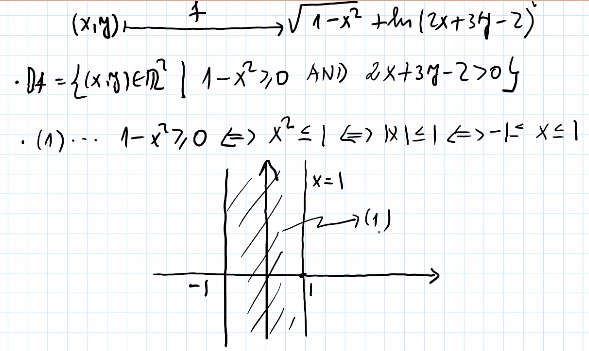 (x,y) ⟼ f √1-x² + ln(2x+3y-2)
· Df = {(x,y)∈ℝ² | 1-x²≥0 AND 2x+3y-2>0}
· (1)... 1-x²≥0 ⟺ x²≤1 ⟺ |x|≤1 ⟺ -1≤ x≤1
x=1
(1)
-1 1